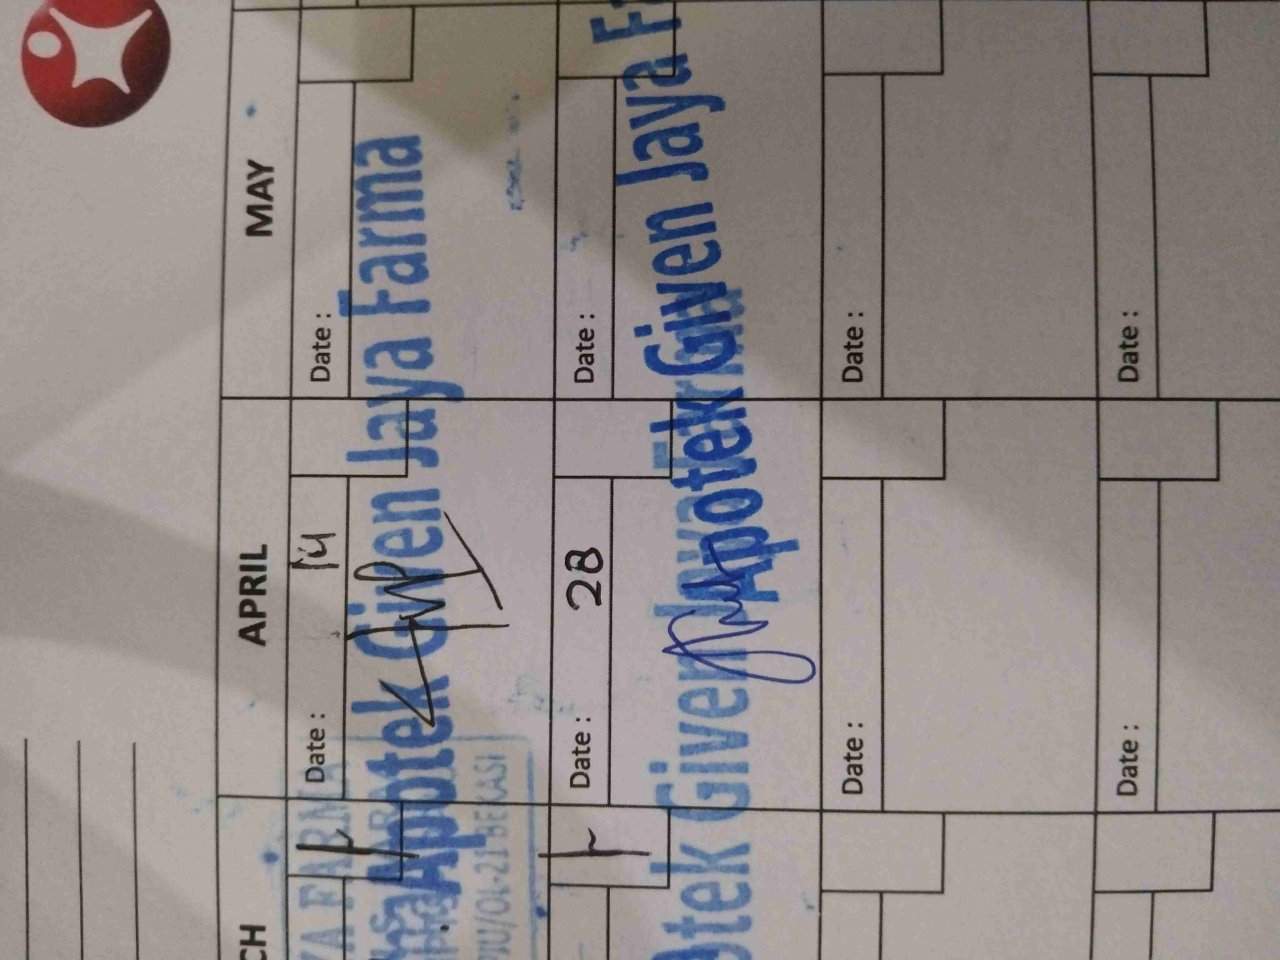 CH APRIL MAY
Date : 14 Date :
Apotek Given Jaya Farma
YA FARMA
/OL-21 BEKASI
Date : 28 Date :
Apotek Given Jaya Fa
otek Given Jaya Farma
Date : Date :
Date : Date :